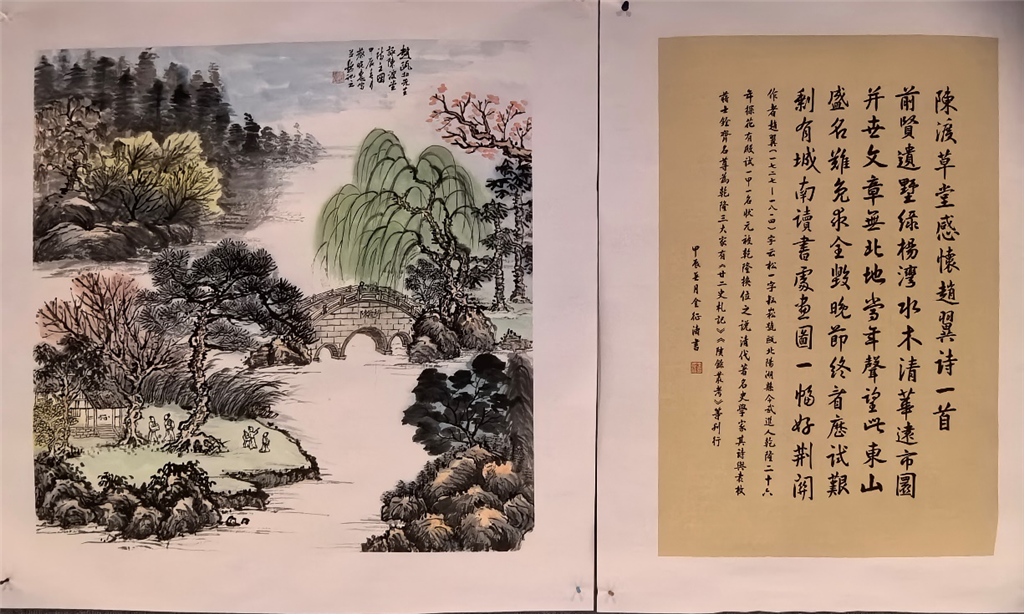 趙甌北先生
甲辰七月
陳渡草堂感懷趙翼詩一首
前賢遺墅綠楊灣水木清華遠市圜
并世文章無北地當年聲望此東山
盛名難免求全毀晚節終看歷試艱
剩有城南讀書處畫圖一幅好荆關
作者趙翼(一七二七—一八一四)字云松號甌北陽湖縣今武進人乾隆二十六
年探花有殿試一甲一名狀元被乾隆換位之說清代著名史學家其詩與袁枚
蔣士銓齊名尊為乾隆三大家有《廿二史札記》《陔餘叢考》等刊行
甲辰七月金征濤書